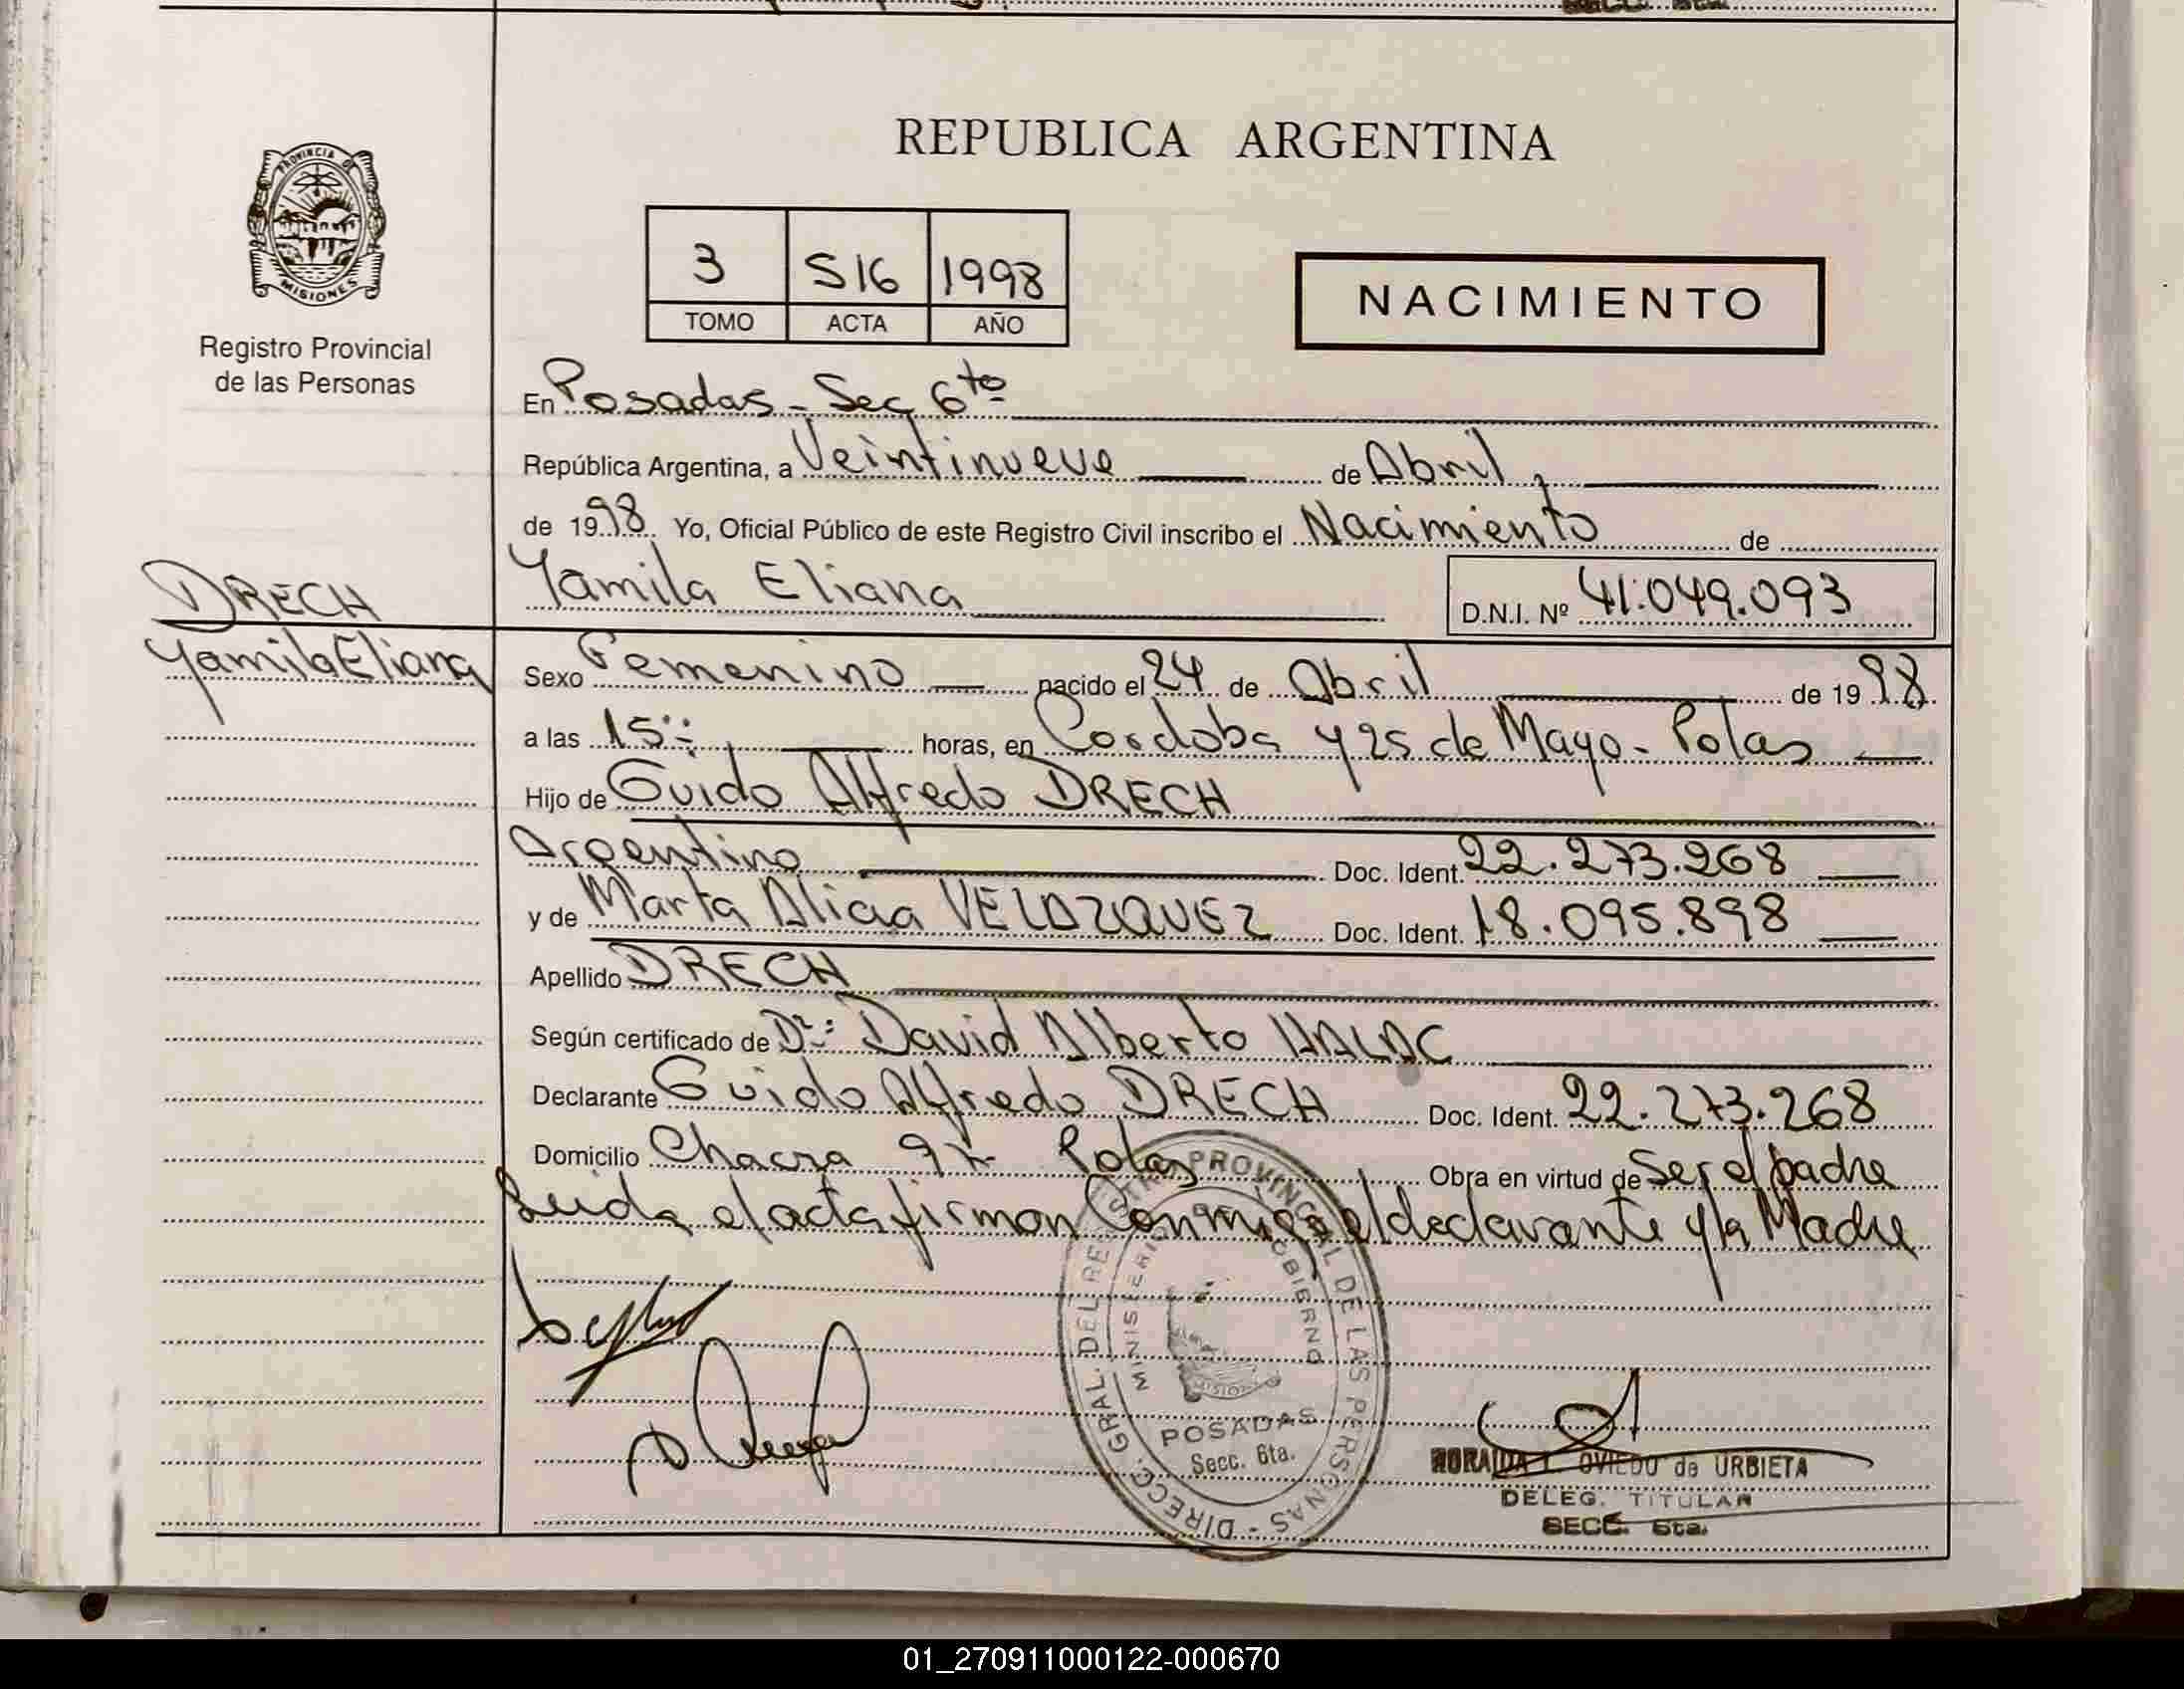 REPUBLICA ARGENTINA
PROVINCIA DE
MISIONES
Registro Provincial
de las Personas
3 516 1998
TOMO ACTA AÑO
NACIMIENTO
En Posadas - Sec 6to
República Argentina, a Veintinueve de Abril,
de 1998 Yo, Oficial Público de este Registro Civil inscribo el Nacimiento de
Yamila Eliana D.N.I. Nº 41.049.093
DRECH
Yamila Eliana
Sexo Femenino nacido el 24 de Abril de 1998
a las 15:: horas, en Cordoba y 25 de Mayo - Pdas
Hijo de Guido Alfredo DRECH
Argentino Doc. Ident. 22.273.268
y de Marta Alicia VELAZQUEZ Doc. Ident. 18.095.898
Apellido DRECH
Según certificado de Dr: David Alberto HALAC
Declarante Guido Alfredo DRECH Doc. Ident. 22.273.268
Domicilio Chacra Pdas Obra en virtud de Ser el padre
Leida el acta firman Conmigo el declarante y la Madre
DIRECC. GRAL. DEL REGISTRO PROVINCIAL DE LAS PERSONAS
MINISTERIO DE GOBIERNO
MISIONES
POSADAS
Secc. 6ta.
OVIEDO de URBIETA
DELEG. TITULAR
SECC. 6ta.
01_270911000122-000670